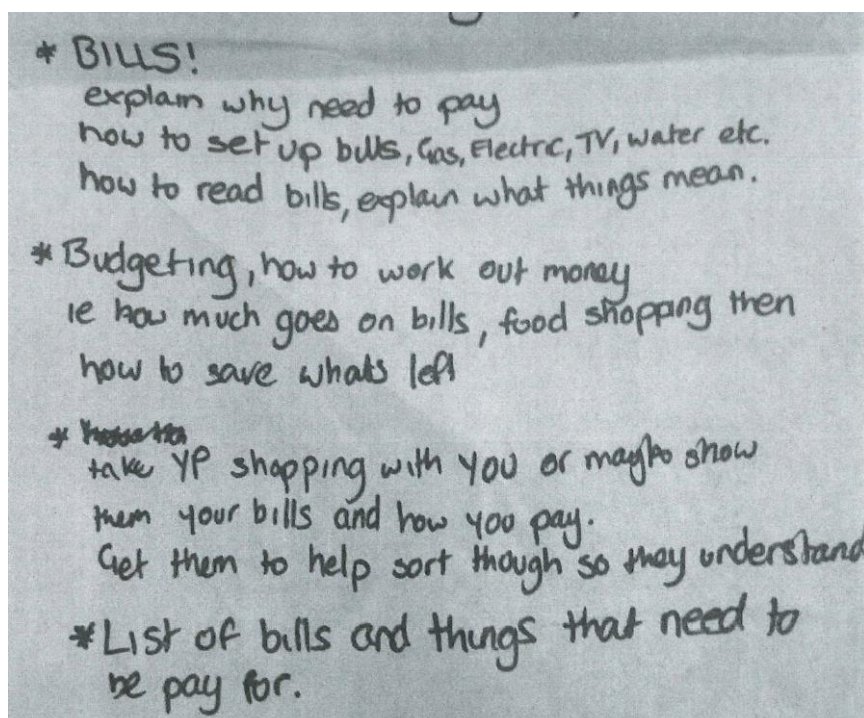 * BILLS!
explain why need to pay
how to set up bills, Gas, Electrc, TV, water etc.
how to read bills, explain what things mean.
* Budgeting, how to work out money
ie how much goes on bills, food shopping then
how to save whats left
*
take YP shopping with you or maybe show
them your bills and how you pay.
Get them to help sort though so they understand
* List of bills and things that need to
be pay for.